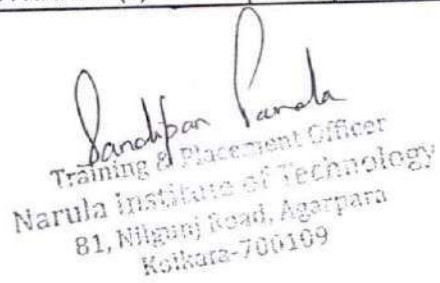 Sandipan
Training & Placement Officer
Narula Institute of Technology
81, Nilgunj Road, Agarpara
Kolkata-700109